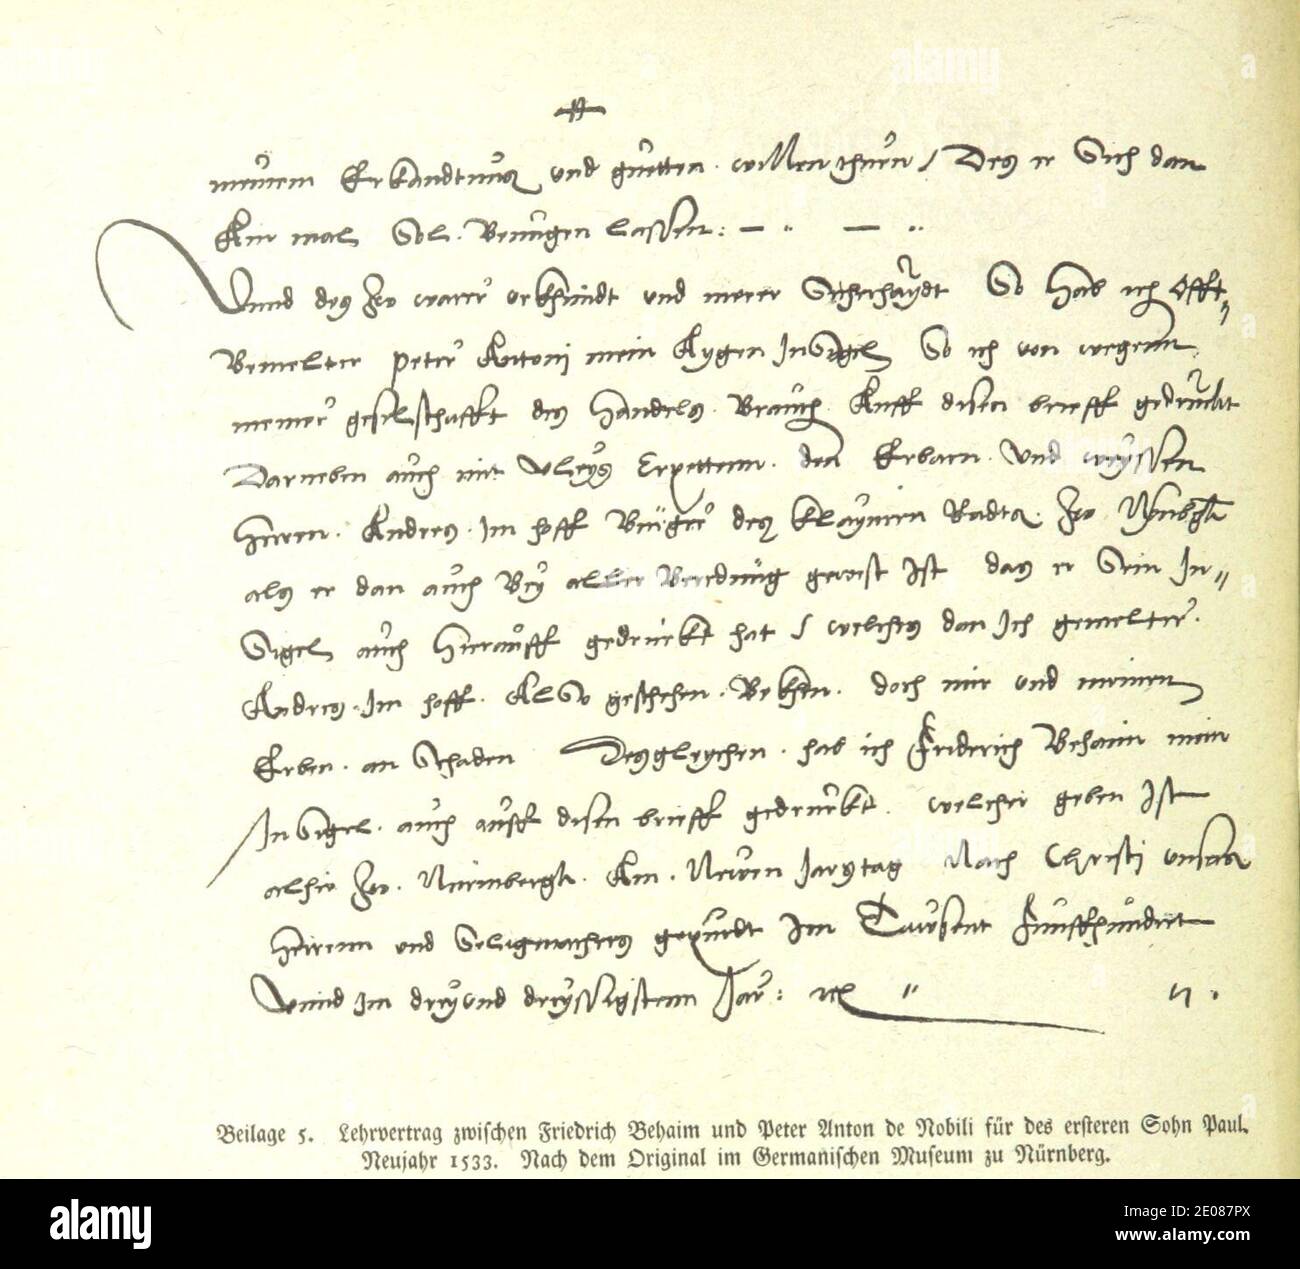 meinem Erkandtnus und guetten willen thuen / Des er Sich dan
Ain mal Sol Benuegen lassen : — " — "
Vnnd des zw warer vrkhundt vnd merer Sicherhaydt So Hab ich Offt„
Bemelter peter Antoni mein Aygen InSigel So ich von wegenn
meiner geselschafft des Handels Brauch Auff disen brieff gedruckt
Darneben auch mit vleys Erpettenn den Erbarn Vnd weyssen
Herren Andres Im hoff Burger des klaynern Radts zw Nurmbgk
als er dan auch Bey aller Beredung gewest Ist das er Sein In„
Sigel auch Hierauff gedruckt hat / welches dan Ich gemelter
Andres Im hoff AlSo geschehen Bekhen doch mir vnd meinen
Erben an Schaden Desgleychen hab ich Friderich Behaim mein
InSigel auch auff disen brieff gedruckt welcher geben Ist
alhie zw Nurmbergk Am Newen Jarstag Nach Christi vnsers
Herrenn vnd Seligmachers gepurdt Im Tawsent Funffhundert
Vnnd Im dreyvnd dreyssigstenn Jar :
Beilage 5. Lehrvertrag zwischen Friedrich Behaim und Peter Anton de Nobili für des ersteren Sohn Paul.
Neujahr 1533. Nach dem Original im Germanischen Museum zu Nürnberg.
alamy
Image ID: 2E087PX
www.alamy.com